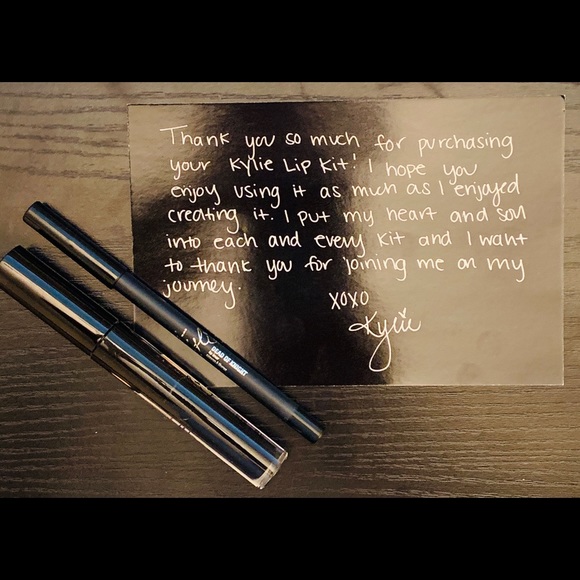 Thank you so much for purchasing
your Kylie Lip Kit! I hope you
enjoy using it as much as I enjoyed
creating it. I put my heart and soul
into each and every kit and I want
to thank you for joining me on my
journey.
XOXO
Kylie
DEAD OF KNIGHT